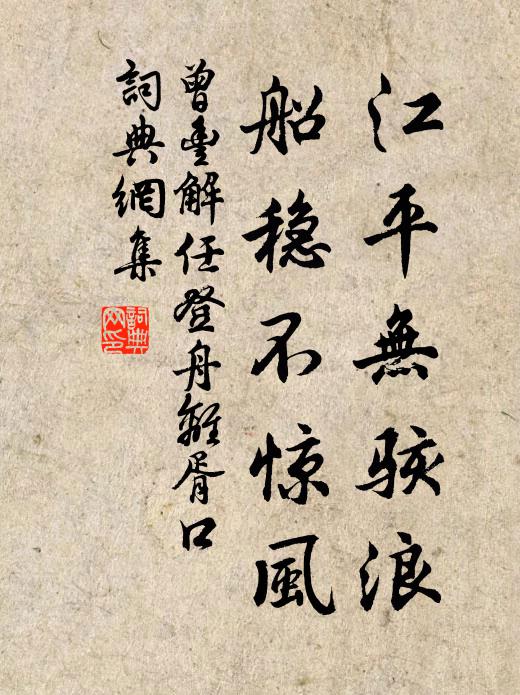 江平無駭浪
船穏不惊風
曾豐解任登舟離胥口
詞典網集
詞典网印